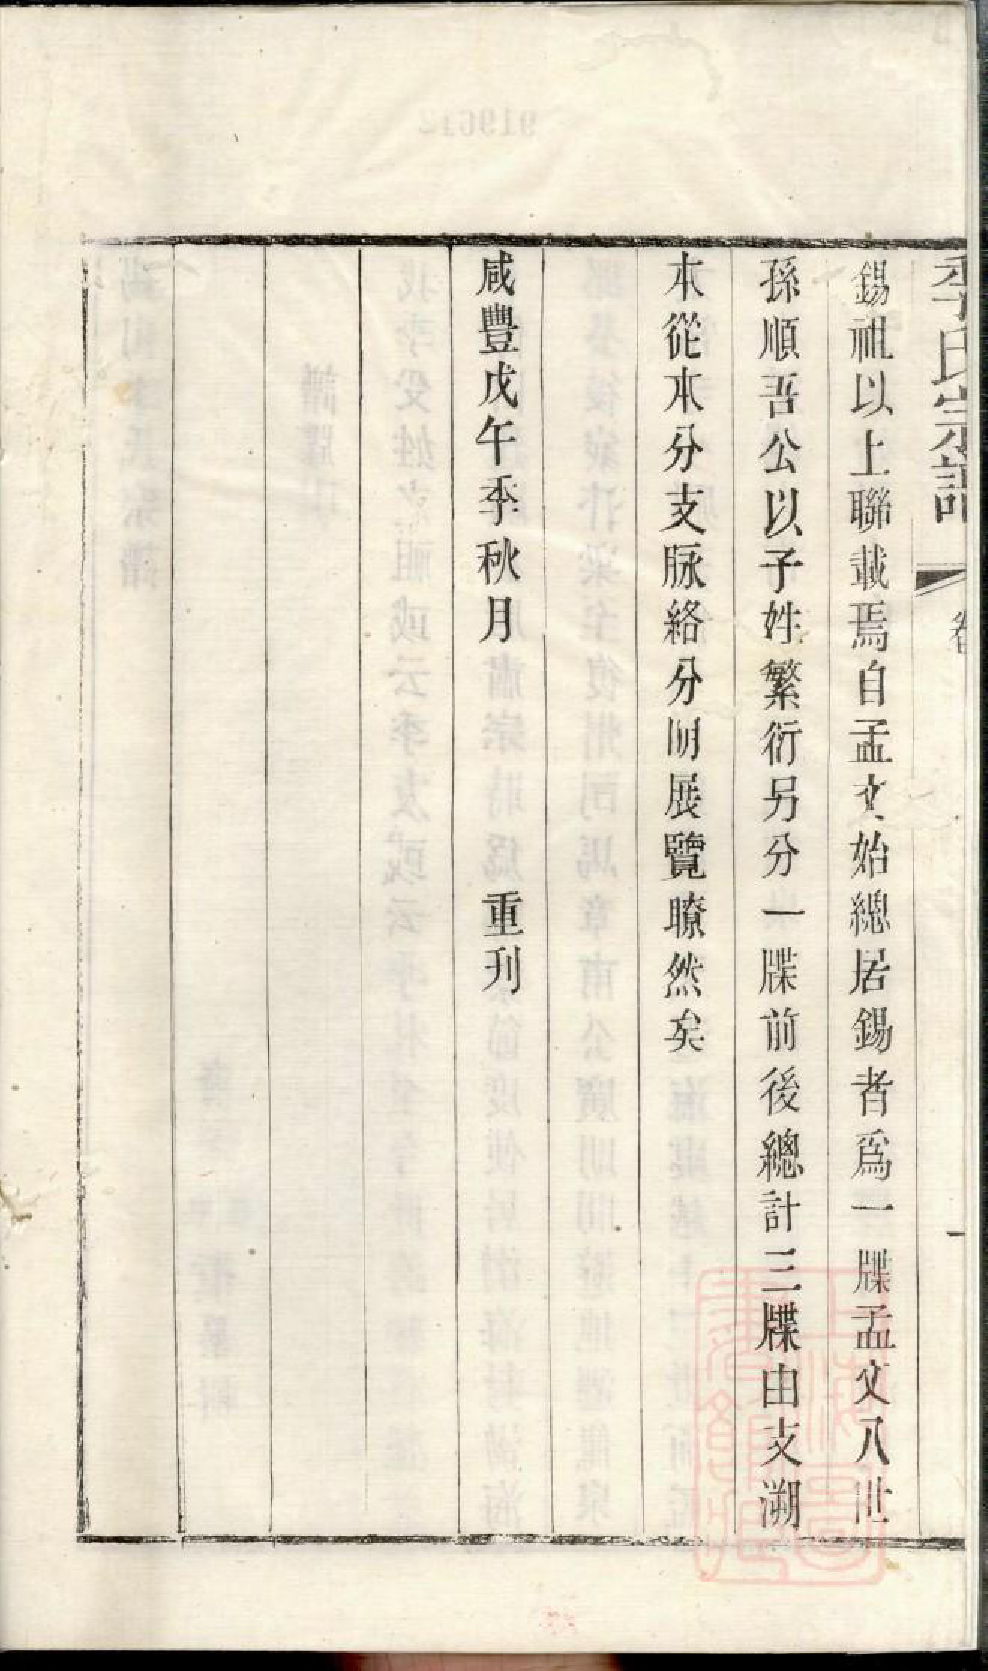 季氏宗譜
卷
一
錫祖以上聯載焉自孟文始總居錫者爲一牒孟文八世
孫順吾公以子姓繁衍另分一牒前後總計三牒由支溯
本從本分支脉絡分明展覽瞭然矣
咸豐戊午季秋月 重刊